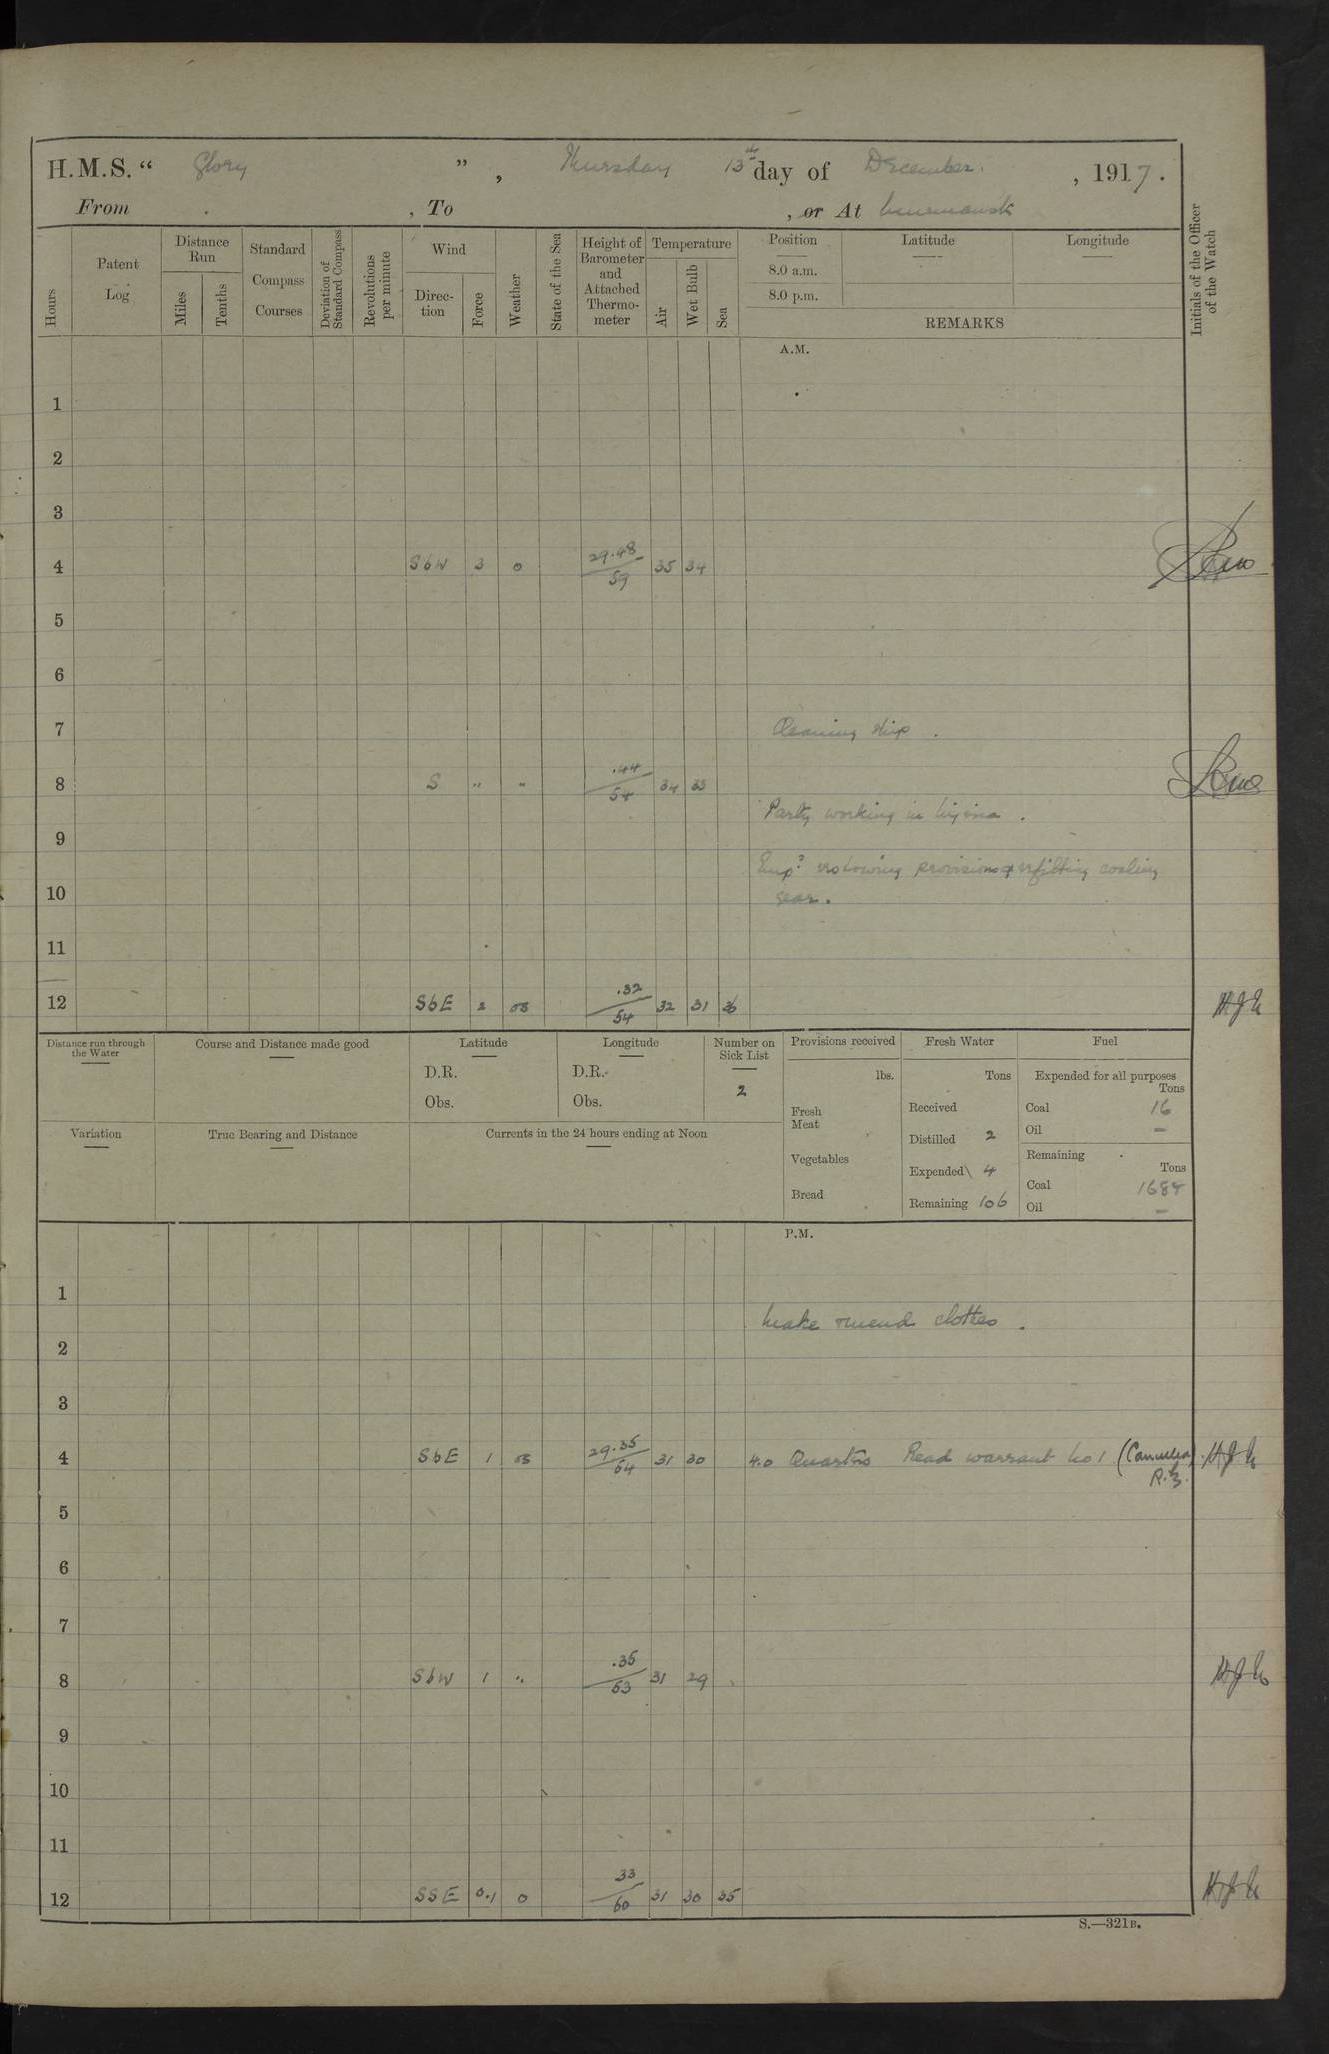 H.M.S. “ Glory ” , Thursday 13th day of December , 1917.
From , To , or At Murmansk
Hours
Patent Log
Distance Run
Miles
Tenths
Standard Compass Courses
Deviation of Standard Compass
Revolutions per minute
Wind
Direc-tion
Force
Weather
State of the Sea
Height of Barometer and Attached Thermo-meter
Temperature
Air
Wet Bulb
Sea
Position
8.0 a.m.
8.0 p.m.
Latitude
Longitude
REMARKS
Initials of the Officer of the Watch
A.M.
1
2
3
4 SbW 3 o 29.48 / 59 35 34
5
6
7 Cleaning ship .
8 S " " .44 / 54 34 33
Party working in .
9
Empd restowing provisions & refitting coaling
10 gear.
11
12 SbE 2 os .32 / 54 32 31 36 HJG
Distance run through the Water
Course and Distance made good
Latitude
D.R.
Obs.
Longitude
D.R.
Obs.
Number on Sick List
2
Provisions received
lbs.
Fresh Meat
Vegetables
Bread
Fresh Water
Tons
Received
Distilled 2
Expended 4
Remaining 106
Fuel
Expended for all purposes
Tons
Coal 16
Oil —
Remaining
Tons
Coal 1688
Oil —
Variation
True Bearing and Distance
Currents in the 24 hours ending at Noon
P.M.
1
Make & mend clothes .
2
3
4 SbE 1 os 29.35 / 54 31 30 4.0 Quarters Read warrant No 1 (Cancelled)
5
6
7
8 SbW 1 " .35 / 53 31 29
9
10
11
12 SSE 0.1 o 33 / 60 31 30 35
S.—321B.